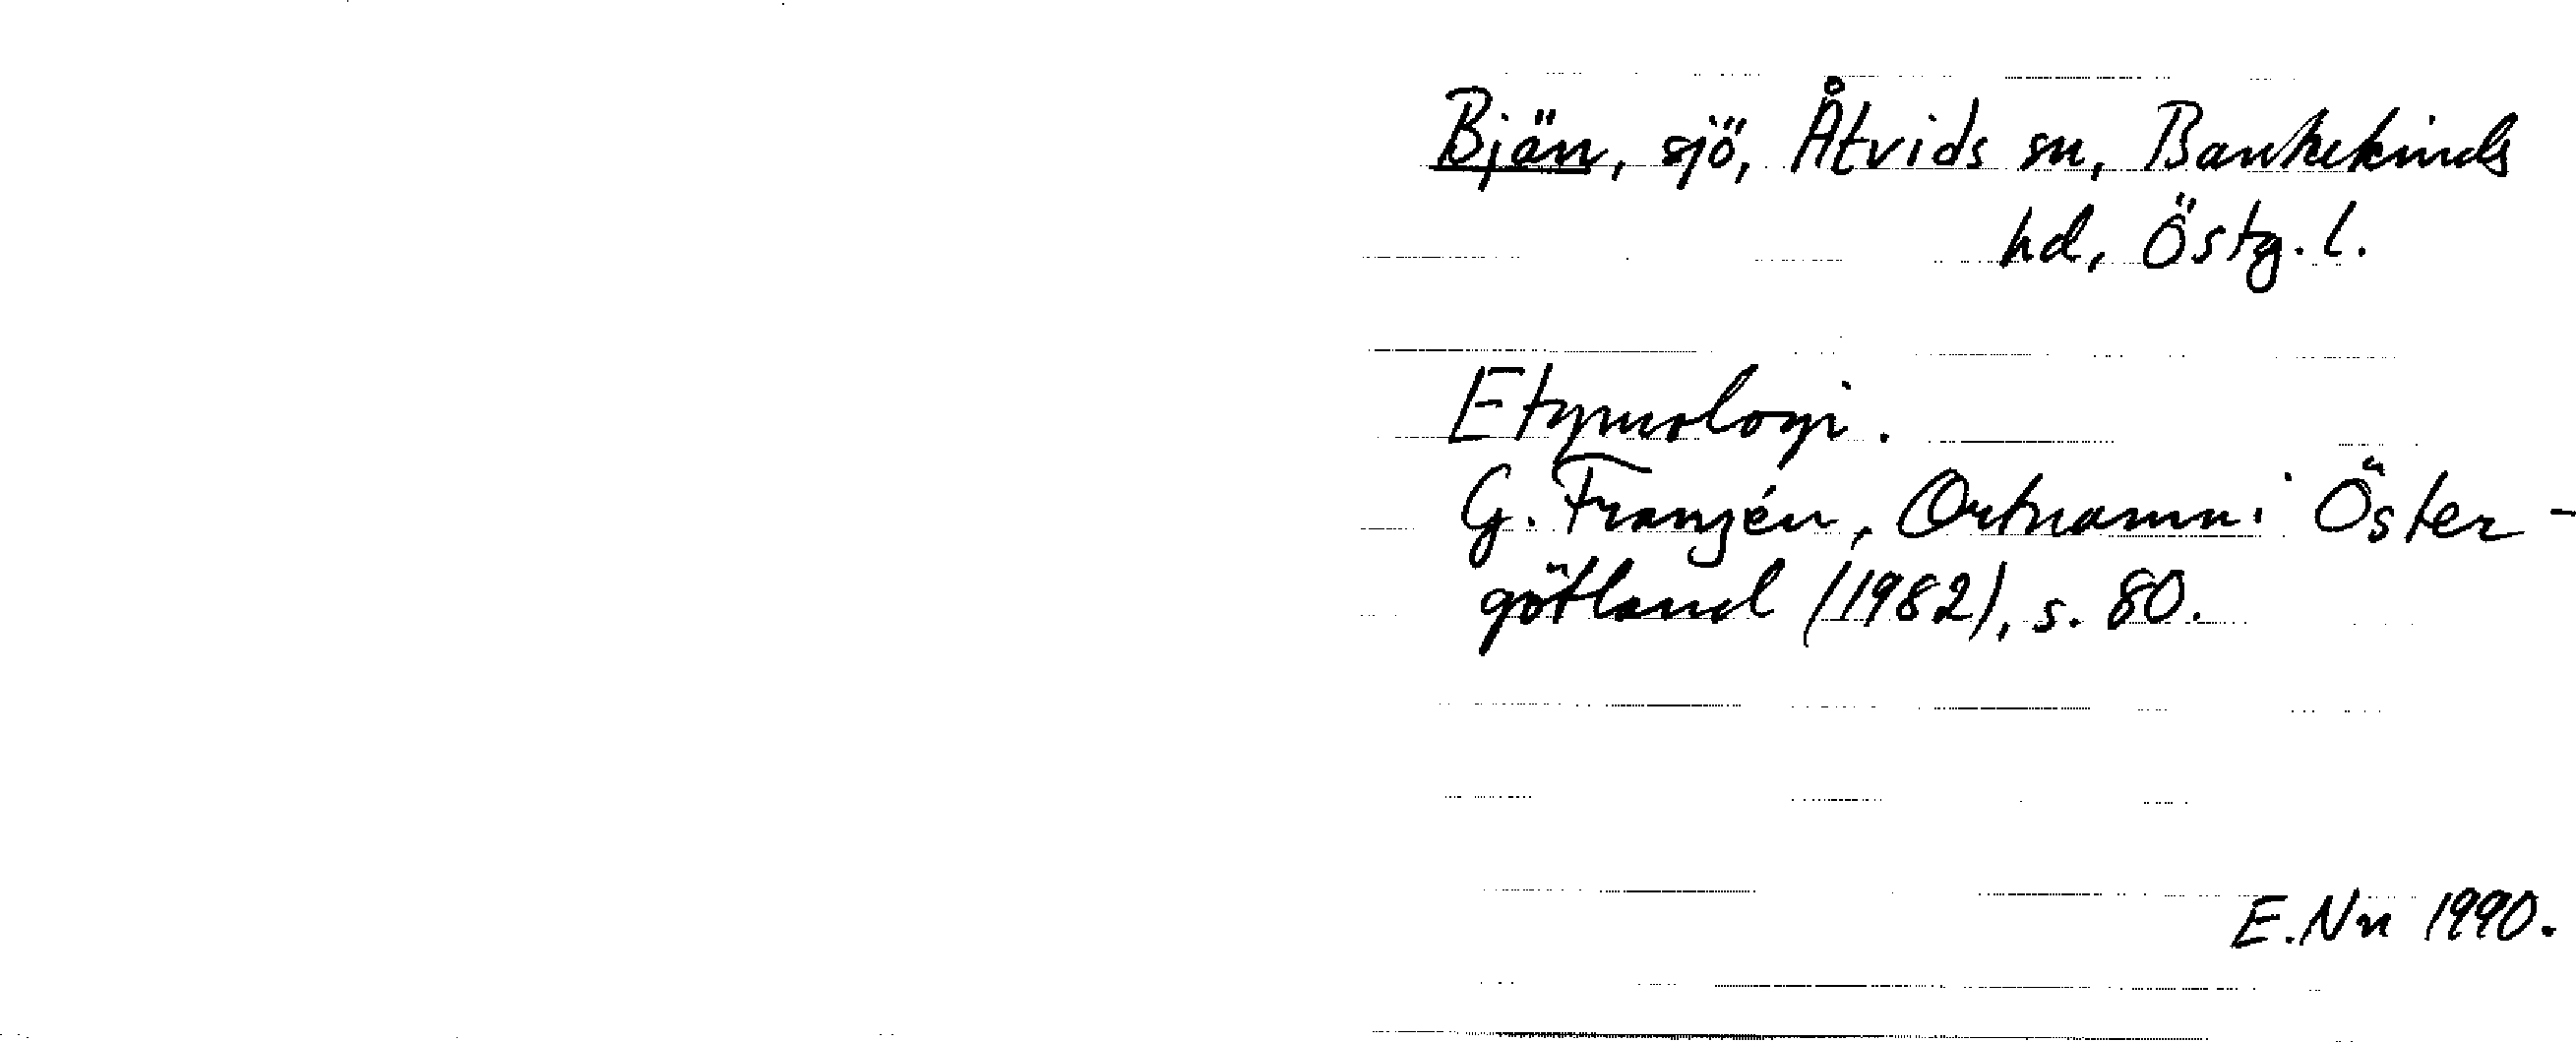 Bjän, sjö, Åtvids sn, Bankekinds
hd, Östg. l.
Etymologi.
G. Franzén, Ortnamn i Öster-
götland (1982), s. 80.
E. Nn 1990.